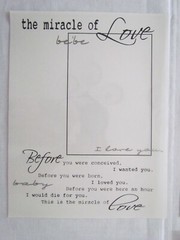 the miracle of Love
bébé
I love you
Before you were conceived,
I wanted you.
Before you were born,
baby I loved you.
Before you were here an hour
I would die for you.
This is the miracle of
Love